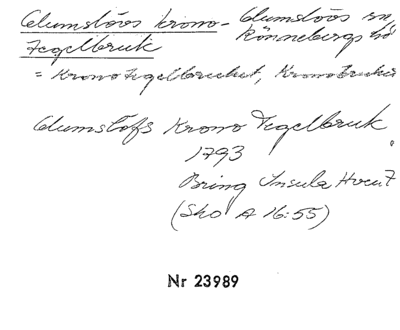 Glumslövs krono- Glumslövs sn,
Tegelbruk Rönnebergs hd
= Krono Tegelbruket, Kronobruket
Glumslöfs Krono Tegelbruk
1793
Bring Insula Hven
(Sko A 16:55)
Nr 23989